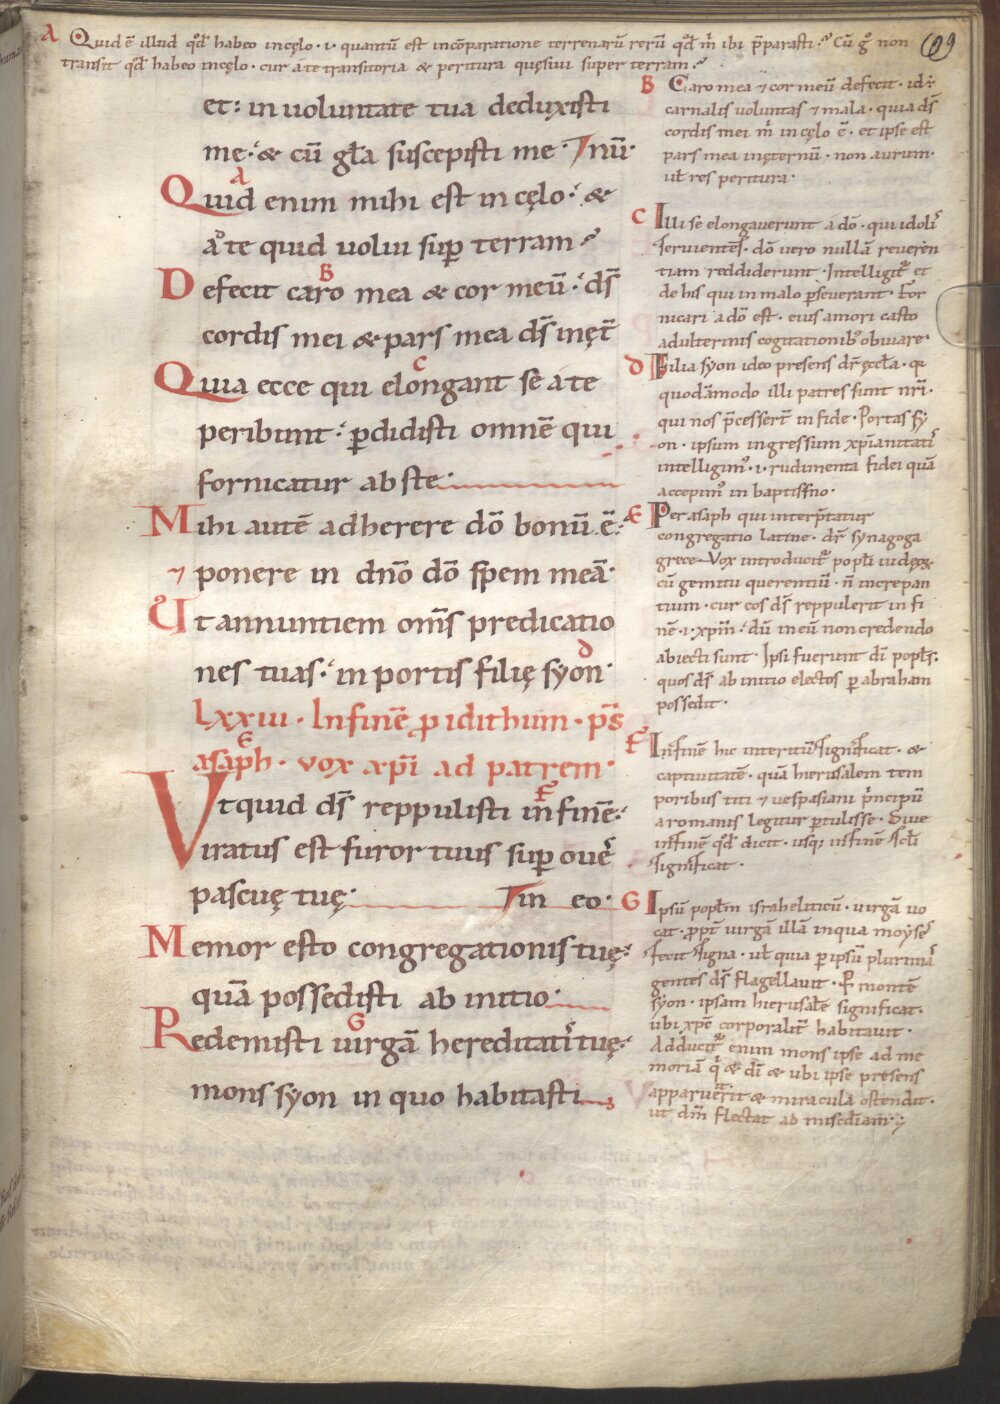 A Quid ē illud qđ habeo in cęlo · i · quantū est in cōparatione terrenarū rerū qđ m̄ ibi p̄parasti ? Cū gͦ non
transit qđ habeo in cęlo · cur a te transitoria & peritura quęsiui super terram ?
109
et : in uoluntate tua deduxisti
me : & cū gła suscepisti me · nū ·
Quid enim mihi est in cęlo : &
a te quid uolui sup terram ?
Defecit caro mea & cor meū : d̄s
cordis mei & pars mea d̄s in ęt̄
Quia ecce qui elongant se a te
peribunt : pdidisti omnē qui
fornicatur abs te ·
Mihi autē adherere dō bonū ē :
⁊ ponere in dn̄o dō spem meā ·
Ut annuntiem om̄s predicatio
nes tuas : in portis filię syon
LXXIII · In finē p idithum · p̄s
asaph · vox xp̄i ad patrem ·
Vt quid d̄s reppulisti in finē :
iratus est furor tuus sup oues
pascuę tuę · in eo ·
Memor esto congregationis tuę :
quā possedisti ab initio ·
Redemisti uirgā hereditatis tuę :
mons syon in quo habitasti
B Caro mea ⁊ cor meū defecit · id ÷
carnalis voluntas ⁊ mala · quia d̄s
cordis mei m̄ in cęlo ē · et ipse est
pars mea in ęternū · non aurum ·
uł res peritura ·
C Illi se elongauerunt a dō · qui idolis
seruientes · dō vero nullā reueren
tiam reddiderunt · Intelligit̄ et
de his qui in malo pseuerant · For
nicari a dō est · eius amori casto
adulterinis cogitationib; obuiare
D Filia syon ideo presens dr̄ ęccła · qͥ
quodāmodo illi patres sunt nr̄i ·
qui nos p̄cessert̄ in fide · Portas sy
on · ipsum ingressum xp̄ianitatis
intelligimꝰ · i · rudimenta fidei quā
accepimꝰ in baptismo ·
E Per asaph qui interp̄tatur
congregatio latine · dr̄ synagoga
grece · Vox introducit̄ popłi iudęoꝝ
cū gemitu querentiū · n̄ increpan
tium · cur eos d̄s reppulerit in fi
nē · i · xp̄m : dū in eū non credendo
abiecti sunt · Ipsi fuerunt di popłs :
quos d̄s ab initio electos p abraham
possedit ·
F In finē hic interitū significat · &
captiuitatē · quā hierusalem tem
poribus titi ⁊ uespasiani p̄ncipū
a romanis legitur ptulisse · Siue
in finē qđ dicit · usq; in finē scłi
significat ·
G Ipsū popłm israheliticū · uirgā uo
cat · ppt̄ uirgā illā in qua moyses
fecit signa · uł quia p ipsū plurimas
gentes d̄s flagellauit · P montē
syon · ipsam hierusalē significat ·
ubi xp̄c corporalit̄ habitauit ·
Adducit̄ enim mons ipse ad me
moriā qͥ & di & ubi ipse presens
apparuerit & miracula ostendit ·
ut dm̄ flectat ad misediam · ;